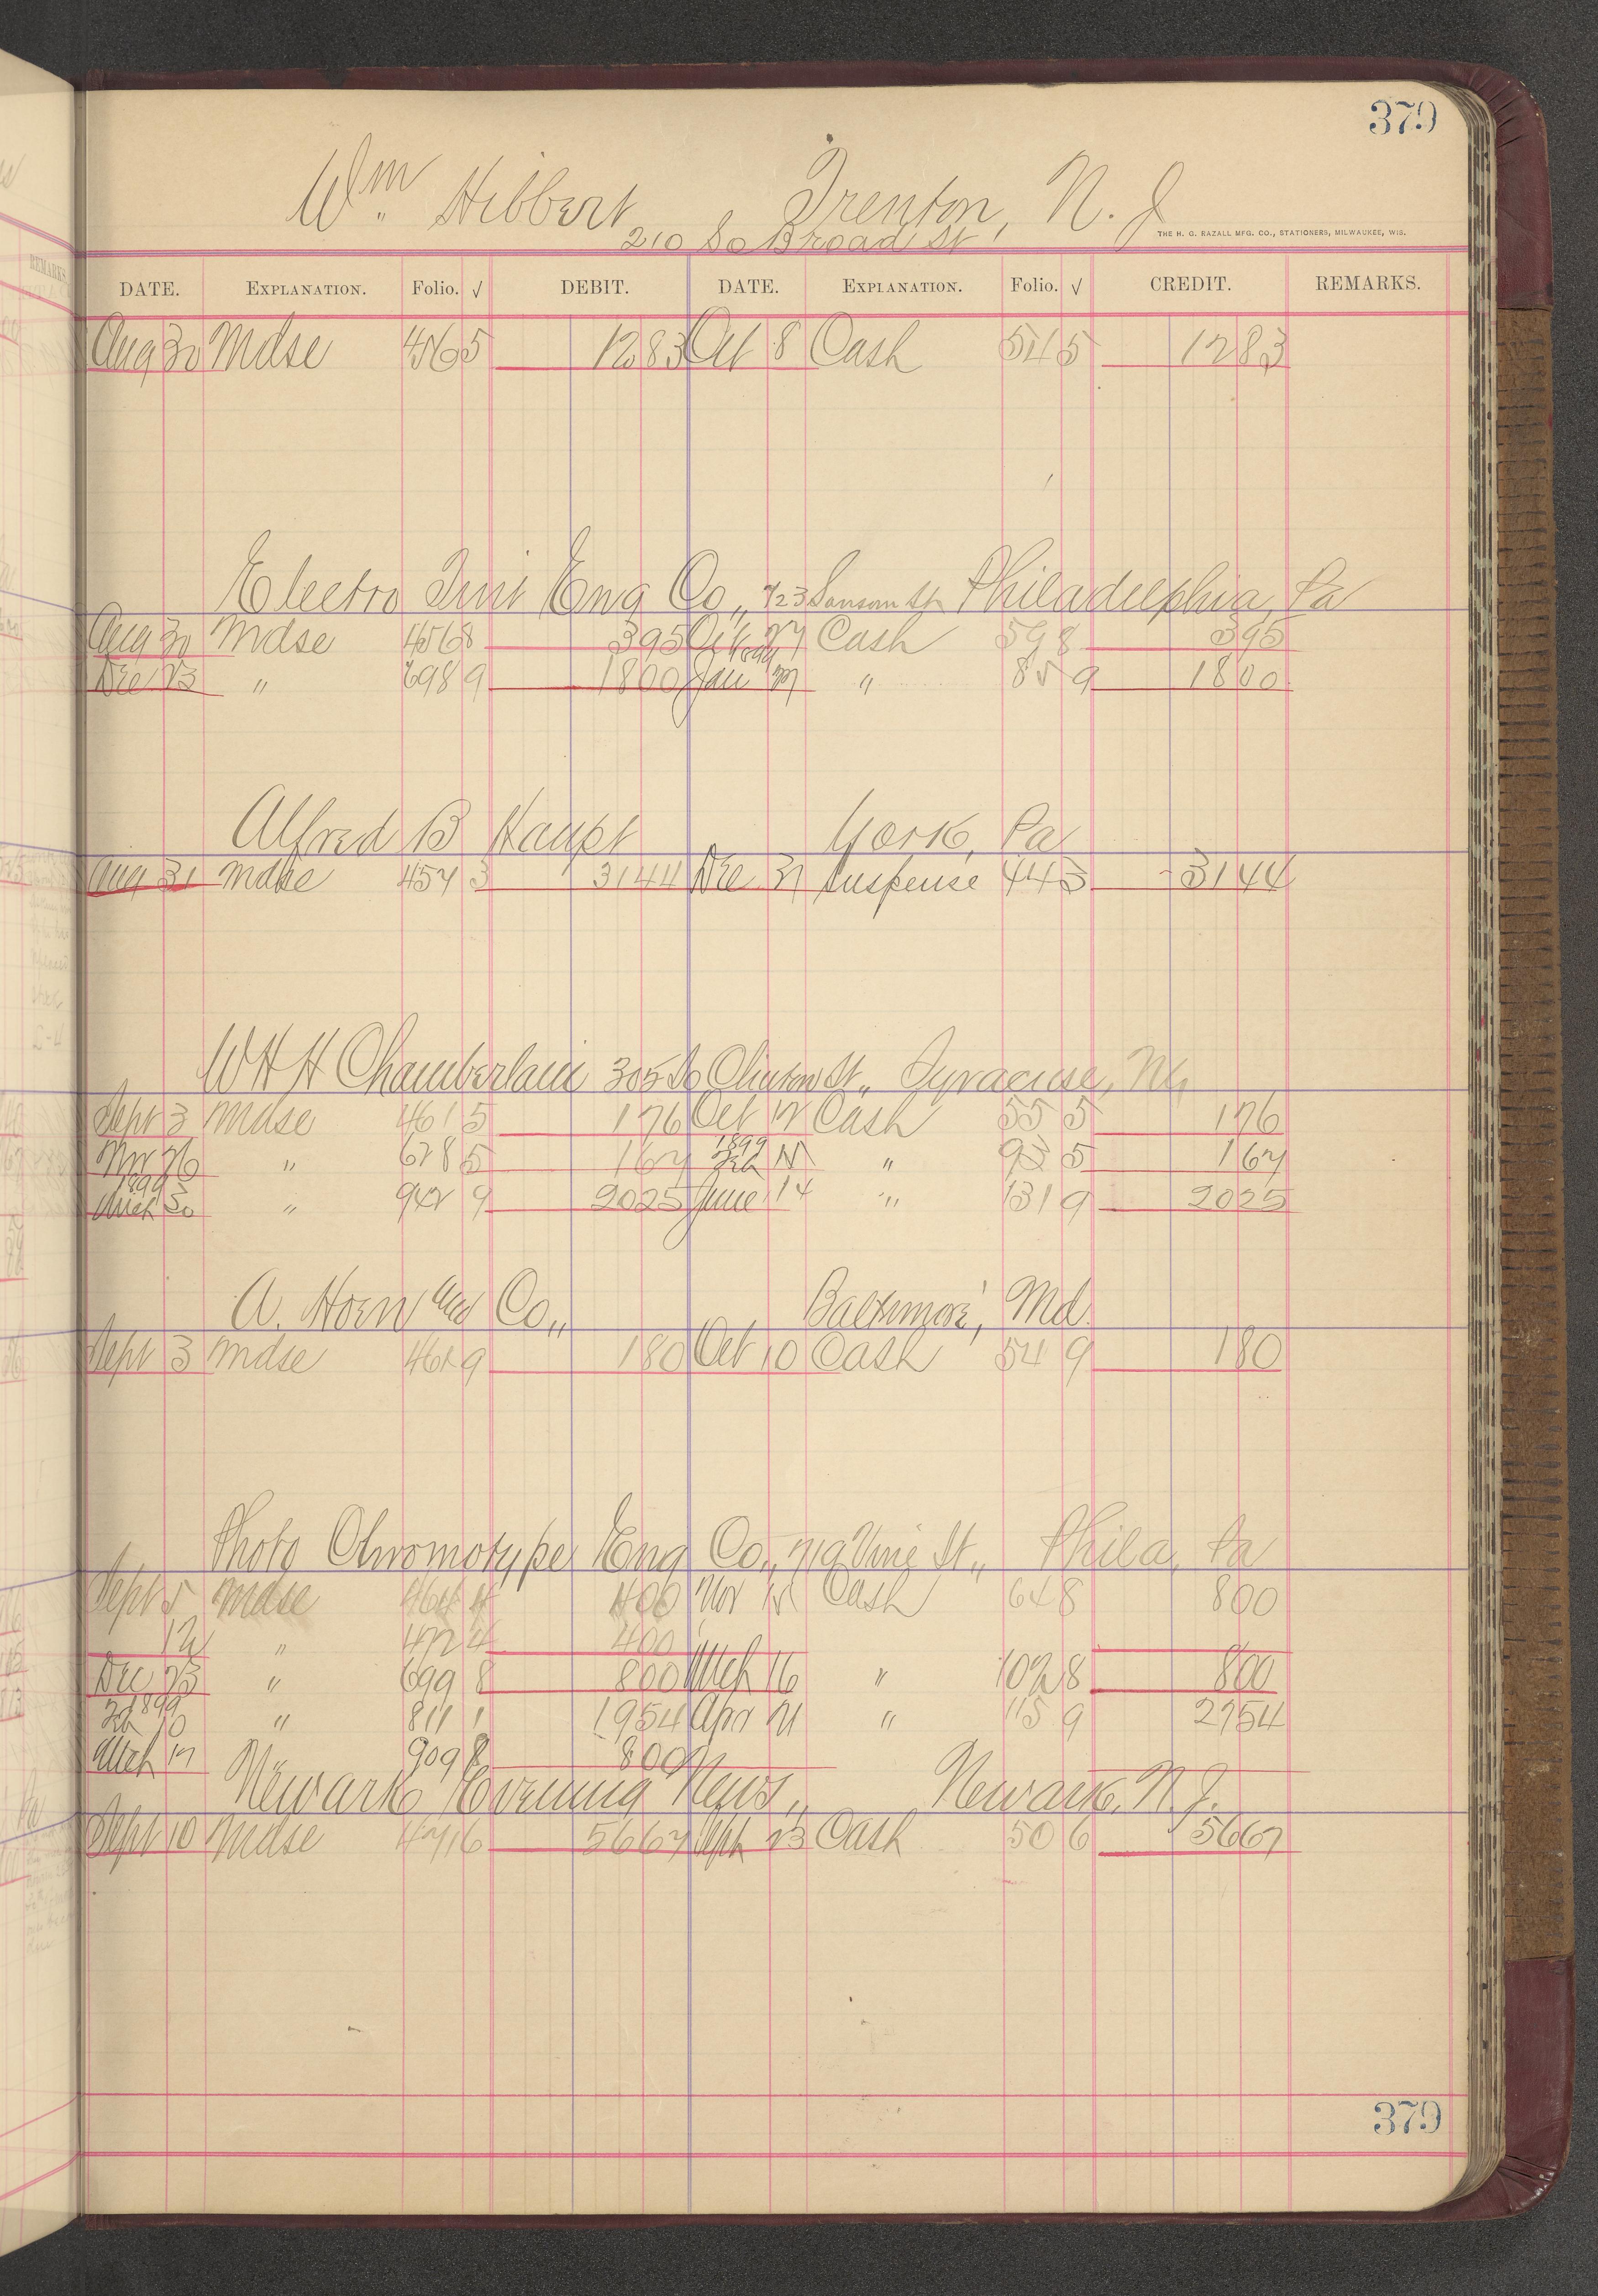 379
Wm Hibbert Trenton, N. J.
210 So Broad St
THE H. G. RAZALL MFG. CO., STATIONERS, MILWAUKEE, WIS.
DATE. EXPLANATION. Folio. √ DEBIT. DATE. EXPLANATION. Folio. √ CREDIT. REMARKS.
Aug 30 Mdse 456 5 1283 Oct 8 Cash 54 5 1283
Electro Tint Eng Co,, 723 Sansom St Philadelphia, Pa
Aug 30 Mdse 456 8 395 Oct 27 Cash 59 8 395
1899
Dec 23 " 698 9 1800 Jan " 85 9 1800
Alfred B Haupt York, Pa
Aug 31 Mdse 457 3 3144 Dec 31 Suspense 44 3 3144
W H H Chamberlain 305 So Clinton St,, Syracuse, NY
Sept 3 Mdse 461 5 176 Oct 12 Cash 55 5 176
1899
Nov 26 " 628 5 167 Feb " 95 5 167
1899
Mch 30 " 942 9 2025 June 14 " 131 9 2025
A. Hoen and Co,, Baltimore, Md.
Sept 3 Mdse 462 9 180 Oct 10 Cash 54 9 180
Photo Chromotype Eng Co,, 719 Vine St,, Phila, Pa
Sept 5 Mdse 464 4 400 Nov 15 Cash 64 8 800
12 " 472 4 400
Dec 23 " 699 8 800 Mch 16 " 102 8 800
1899
Feb 10 " 811 1 1954 Apr 21 " 115 9 2754
Mch 17 " 909 8 800
Newark Evening News,, Newark, N. J.
Sept 10 Mdse 471 6 5667 Sept 23 Cash 50 6 5667
379